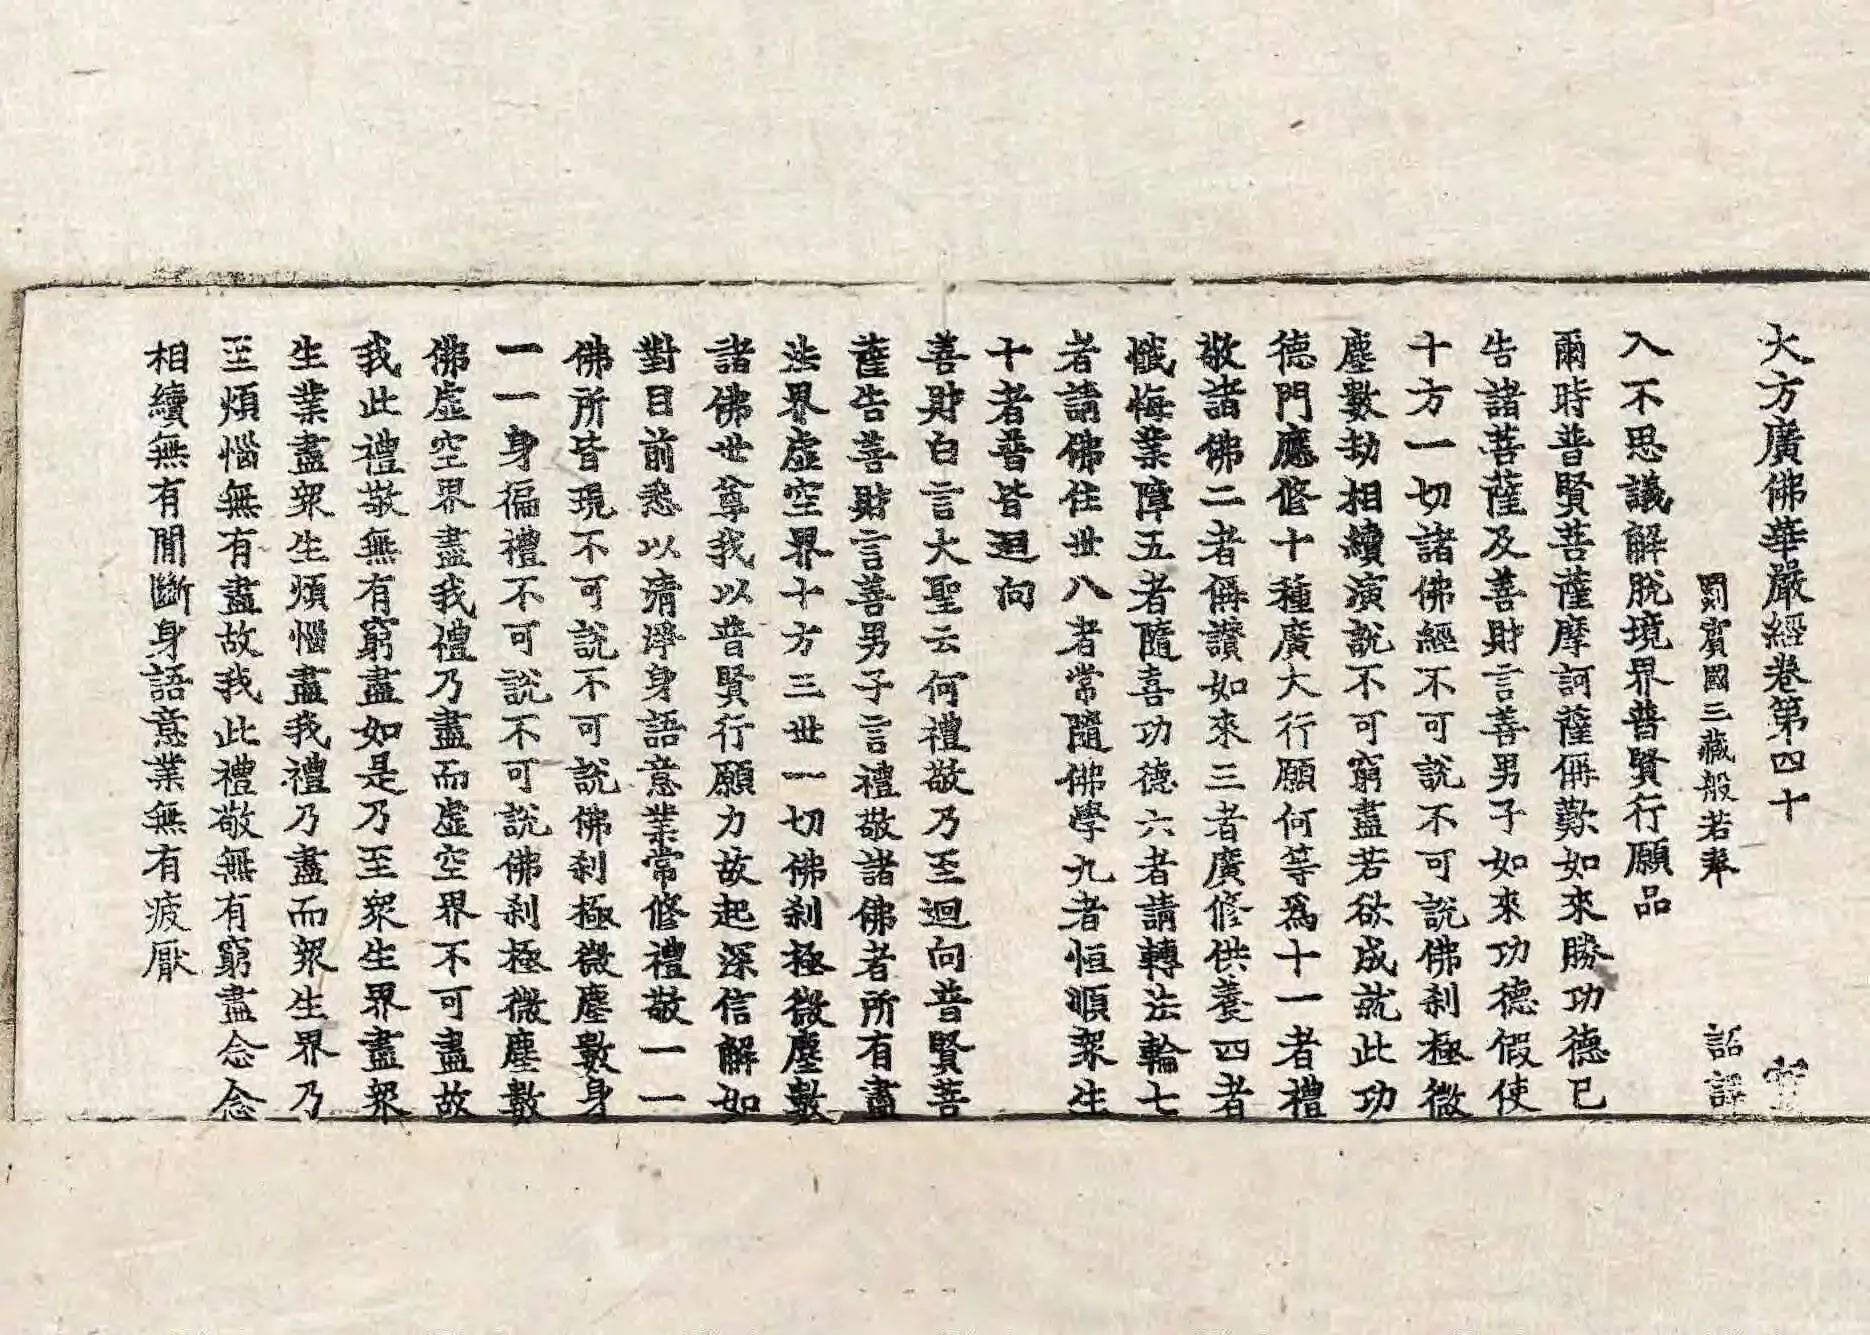 大方廣佛華嚴經卷第四十
罽賓國三藏般若奉 詔譯
入不思議解脫境界普賢行願品
爾時普賢菩薩摩訶薩偁歎如來勝功德已
告諸菩薩及善財言善男子如來功德假使
十方一切諸佛經不可說不可說佛剎極微
塵數劫相續演說不可窮盡若欲成就此功
德門應修十種廣大行願何等爲十一者禮
敬諸佛二者偁讃如來三者廣修供養四者
懺悔業障五者隨喜功德六者請轉法輪七
者請佛住世八者常隨佛學九者恒順衆生
十者普皆迴向
善財白言大聖云何禮敬乃至迴向普賢菩
薩告善財言善男子言禮敬諸佛者所有盡
法界虛空界十方三世一切佛剎極微塵數
諸佛世尊我以普賢行願力故起深信解如
對目前悉以清淨身語意業常修禮敬一一
佛所皆現不可說不可說佛剎極微塵數身
一一身徧禮不可說不可說佛剎極微塵數
佛虛空界盡我禮乃盡而虛空界不可盡故
我此禮敬無有窮盡如是乃至衆生界盡衆
生業盡衆生煩惱盡我禮乃盡而衆生界乃
至煩惱無有盡故我此禮敬無有窮盡念念
相續無有間斷身語意業無有疲厭